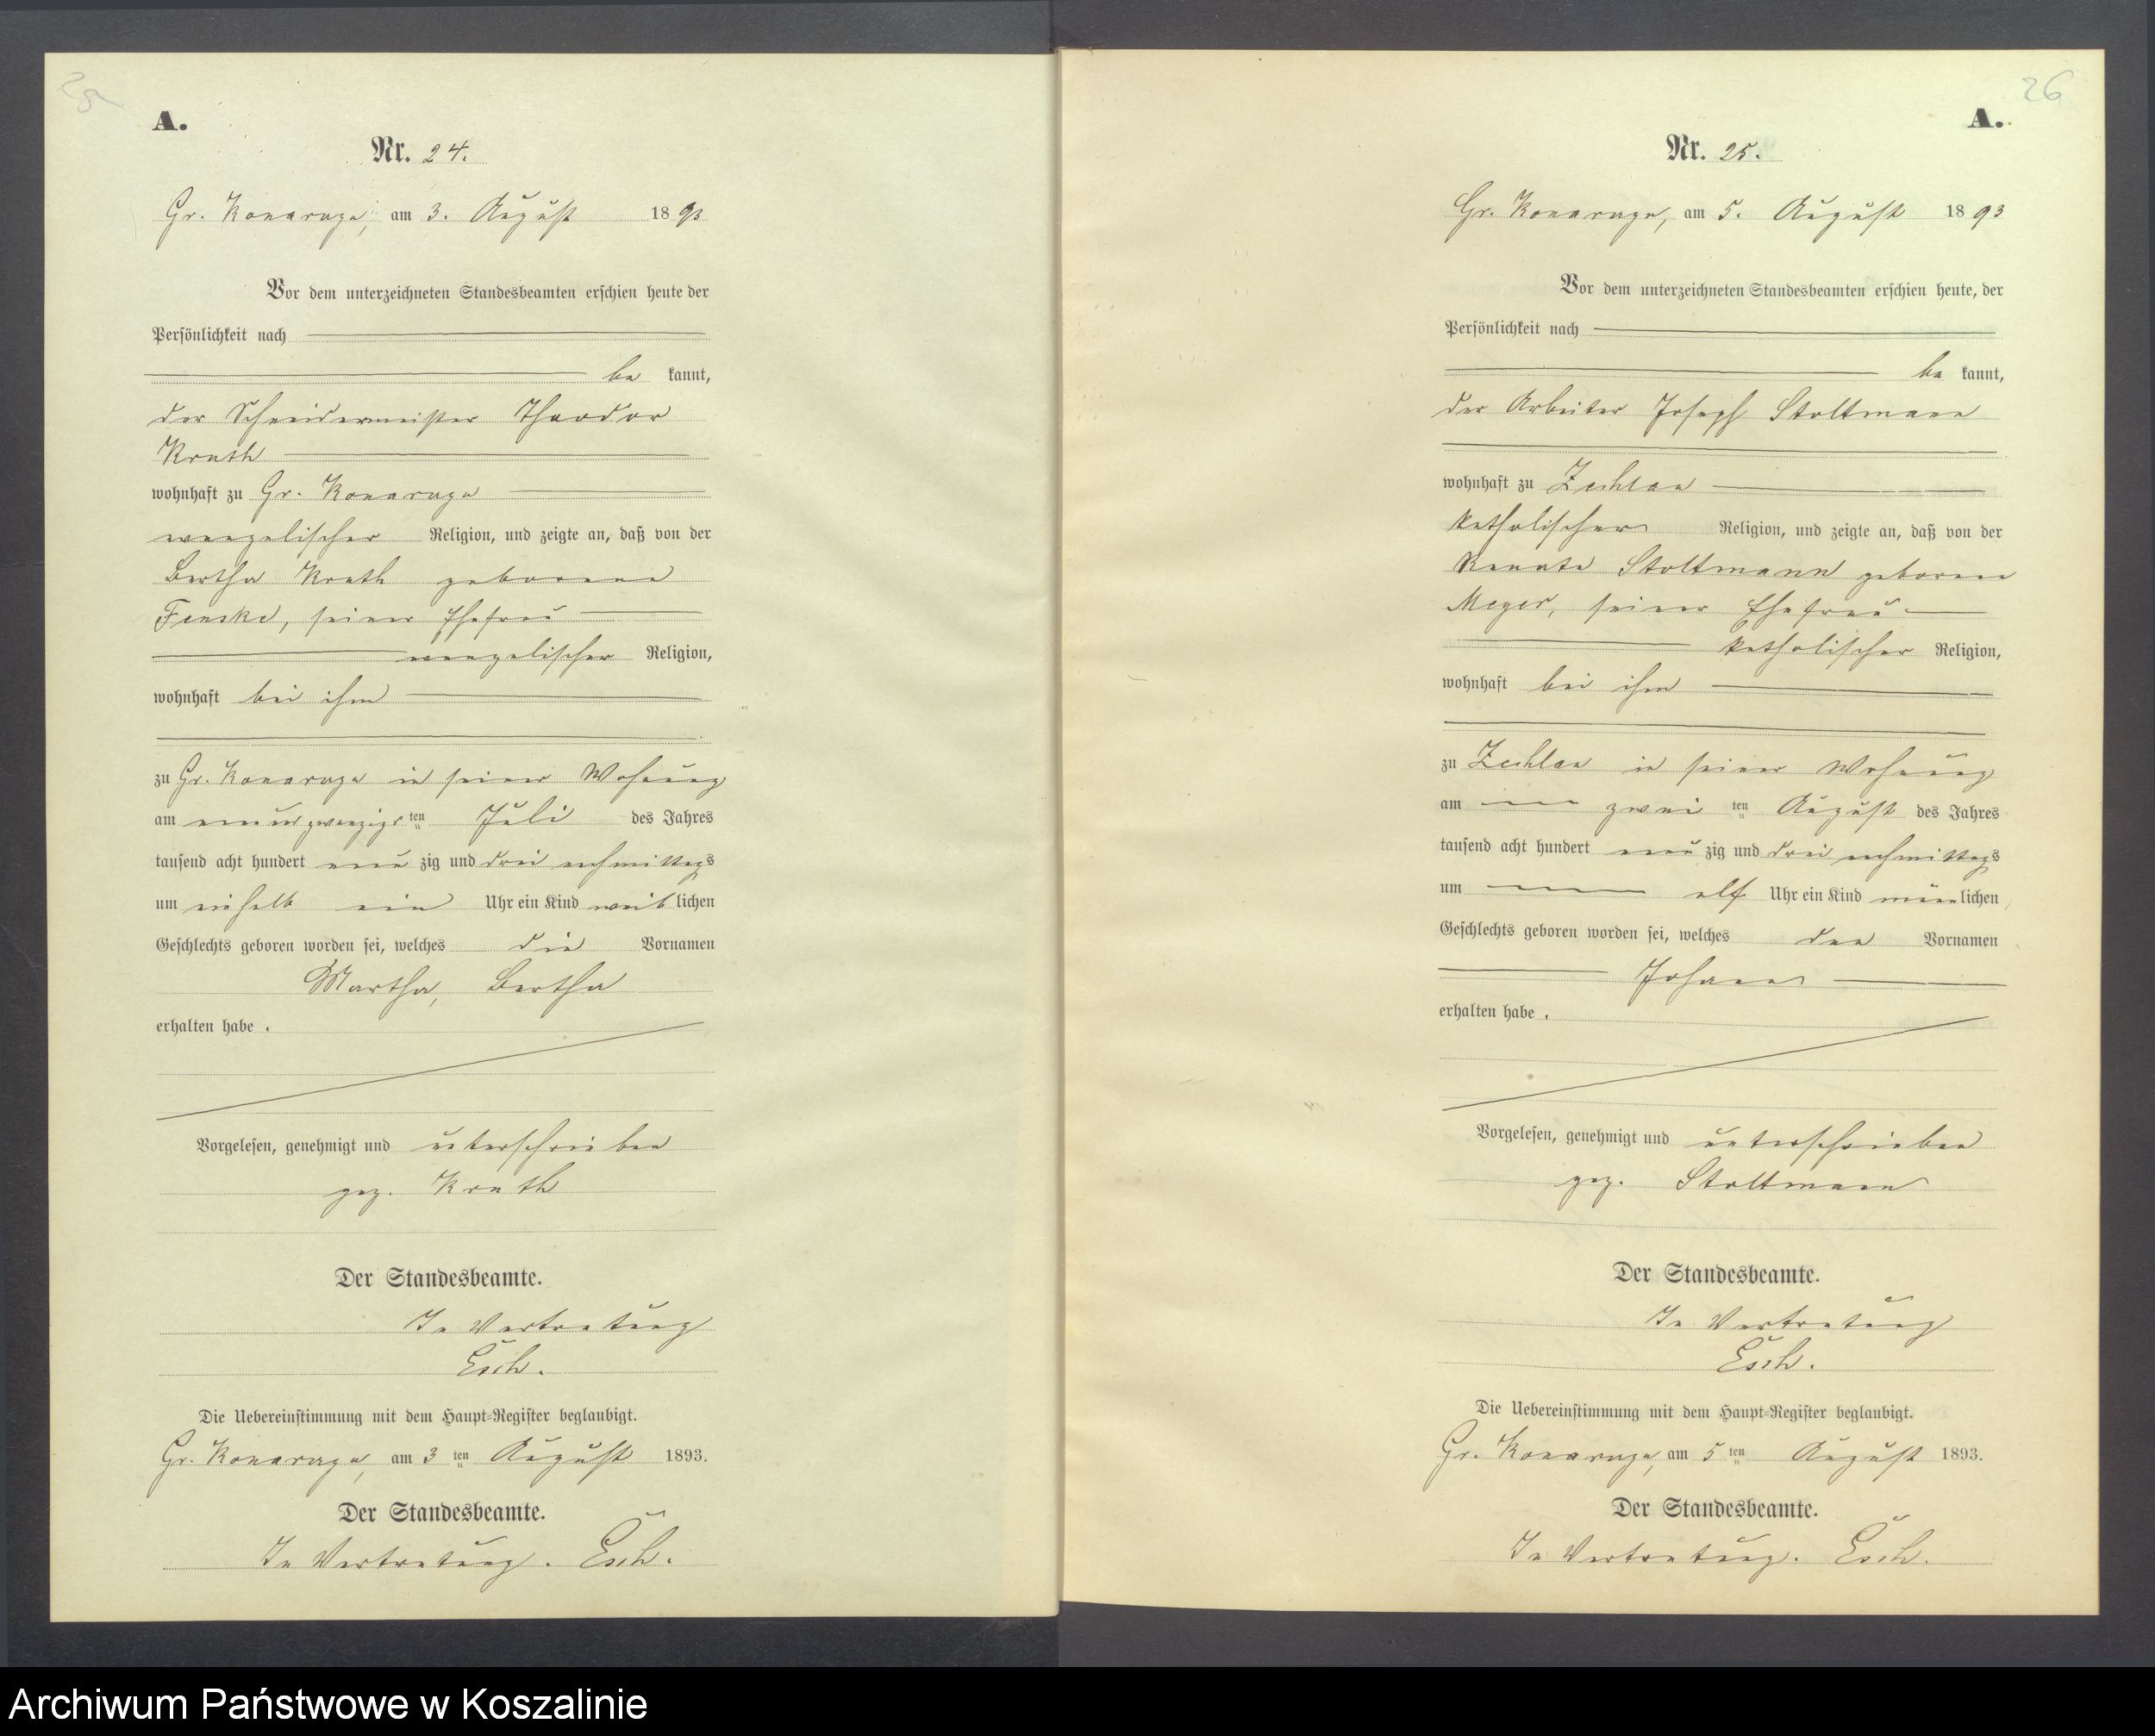 A.
Nr. 24.
Gr. Konarzyn, am 3. August 1893
Vor dem unterzeichneten Standesbeamten erschien heute der
Persönlichkeit nach
be kannt,
der Schneidermeister Theodor
Krath
wohnhaft zu Gr. Konarzyn
evangelischer Religion, und zeigte an, daß von der
Bertha Krath geborene
Fenske, seiner Ehefrau
evangelischer Religion,
wohnhaft bei ihm
zu Gr. Konarzyn in seiner Wohnung
am neunundzwanzigsten Juli des Jahres
tausend acht hundert neun zig und drei nachmittags
um einhalb ein Uhr ein Kind weiblichen
Geschlechts geboren worden sei, welches die Vornamen
Martha, Bertha
erhalten habe.
Vorgelesen, genehmigt und unterschrieben
gez. Krath
Der Standesbeamte.
In Vertretung
Esch.
Die Uebereinstimmung mit dem Haupt-Register beglaubigt.
Gr. Konarzyn, am 3 ten August 1893.
Der Standesbeamte.
In Vertretung. Esch.
26
A.
Nr. 25.
Gr. Konarzyn, am 5. August 1893
Vor dem unterzeichneten Standesbeamten erschien heute, der
Persönlichkeit nach
be kannt,
der Arbeiter Joseph Stoltmann
wohnhaft zu Zechlau
katholischer Religion, und zeigte an, daß von der
Renate Stoltmann geborene
Meyer, seiner Ehefrau
katholischer Religion,
wohnhaft bei ihm
zu Zechlau in seiner Wohnung
am zwei ten August des Jahres
tausend acht hundert neun zig und drei nachmittags
um elf Uhr ein Kind männlichen
Geschlechts geboren worden sei, welches den Vornamen
Johann
erhalten habe.
Vorgelesen, genehmigt und unterschrieben
gez. Stoltmann
Der Standesbeamte.
In Vertretung
Esch.
Die Uebereinstimmung mit dem Haupt-Register beglaubigt.
Gr. Konarzyn, am 5 ten August 1893.
Der Standesbeamte.
In Vertretung. Esch.
Archiwum Państwowe w Koszalinie